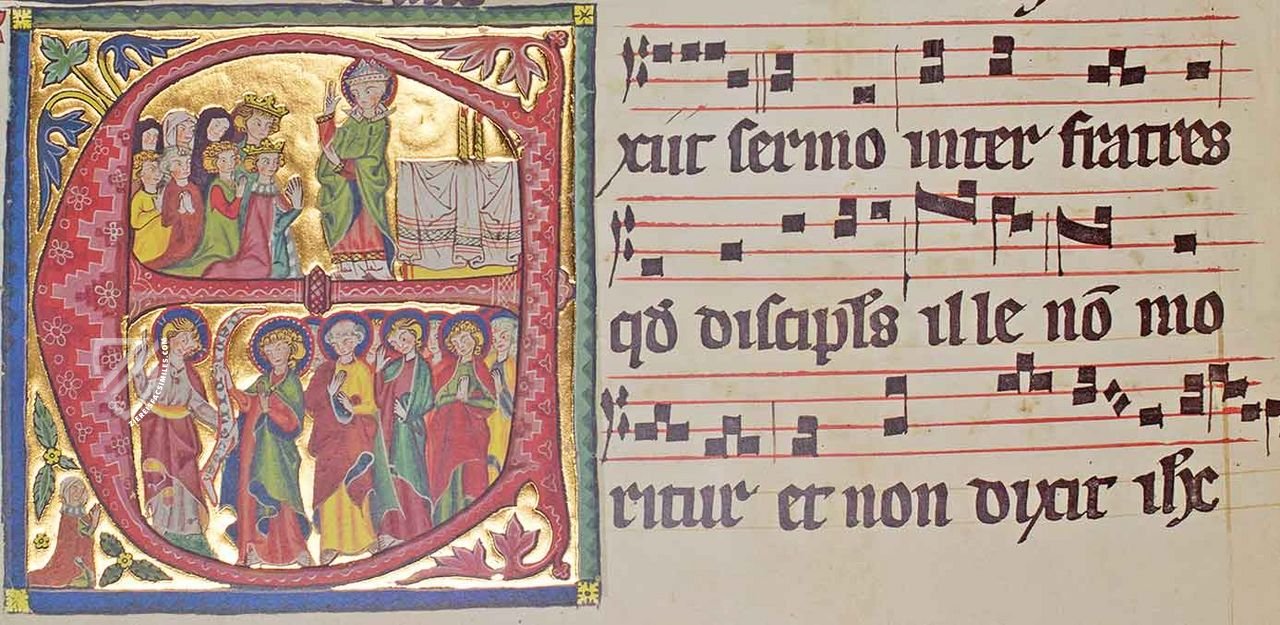 xiit sermo inter fratres
qđ discipłs ille nō mo
ritur et non dixit ihc
ZIEREISFACSIMILES.COM